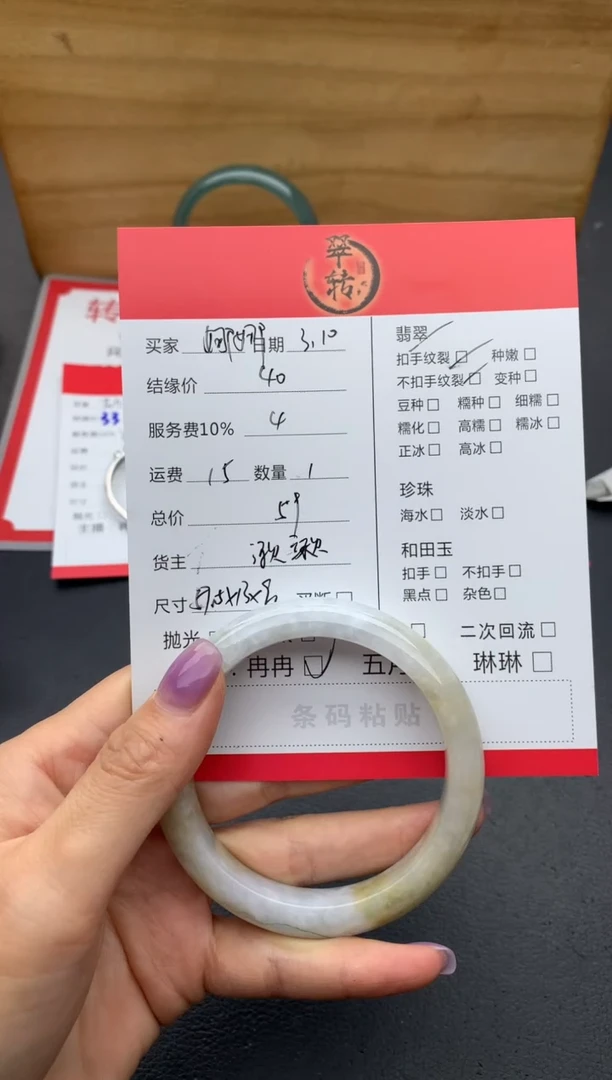 翠转
买家 日期 3.10
结缘价 40
服务费10% 4
运费 15 数量 1
总价 59
货主
尺寸 57.5x13x8 买断□
抛光
冉冉☑ 五月
条码粘贴
翡翠
扣手纹裂☑ 种嫩□
不扣手纹裂☑ 变种□
豆种□ 糯种□ 细糯□
糯化□ 高糯□ 糯冰□
正冰□ 高冰□
珍珠
海水□ 淡水□
和田玉
扣手□ 不扣手□
黑点□ 杂色□
二次回流□
琳琳□
转
33